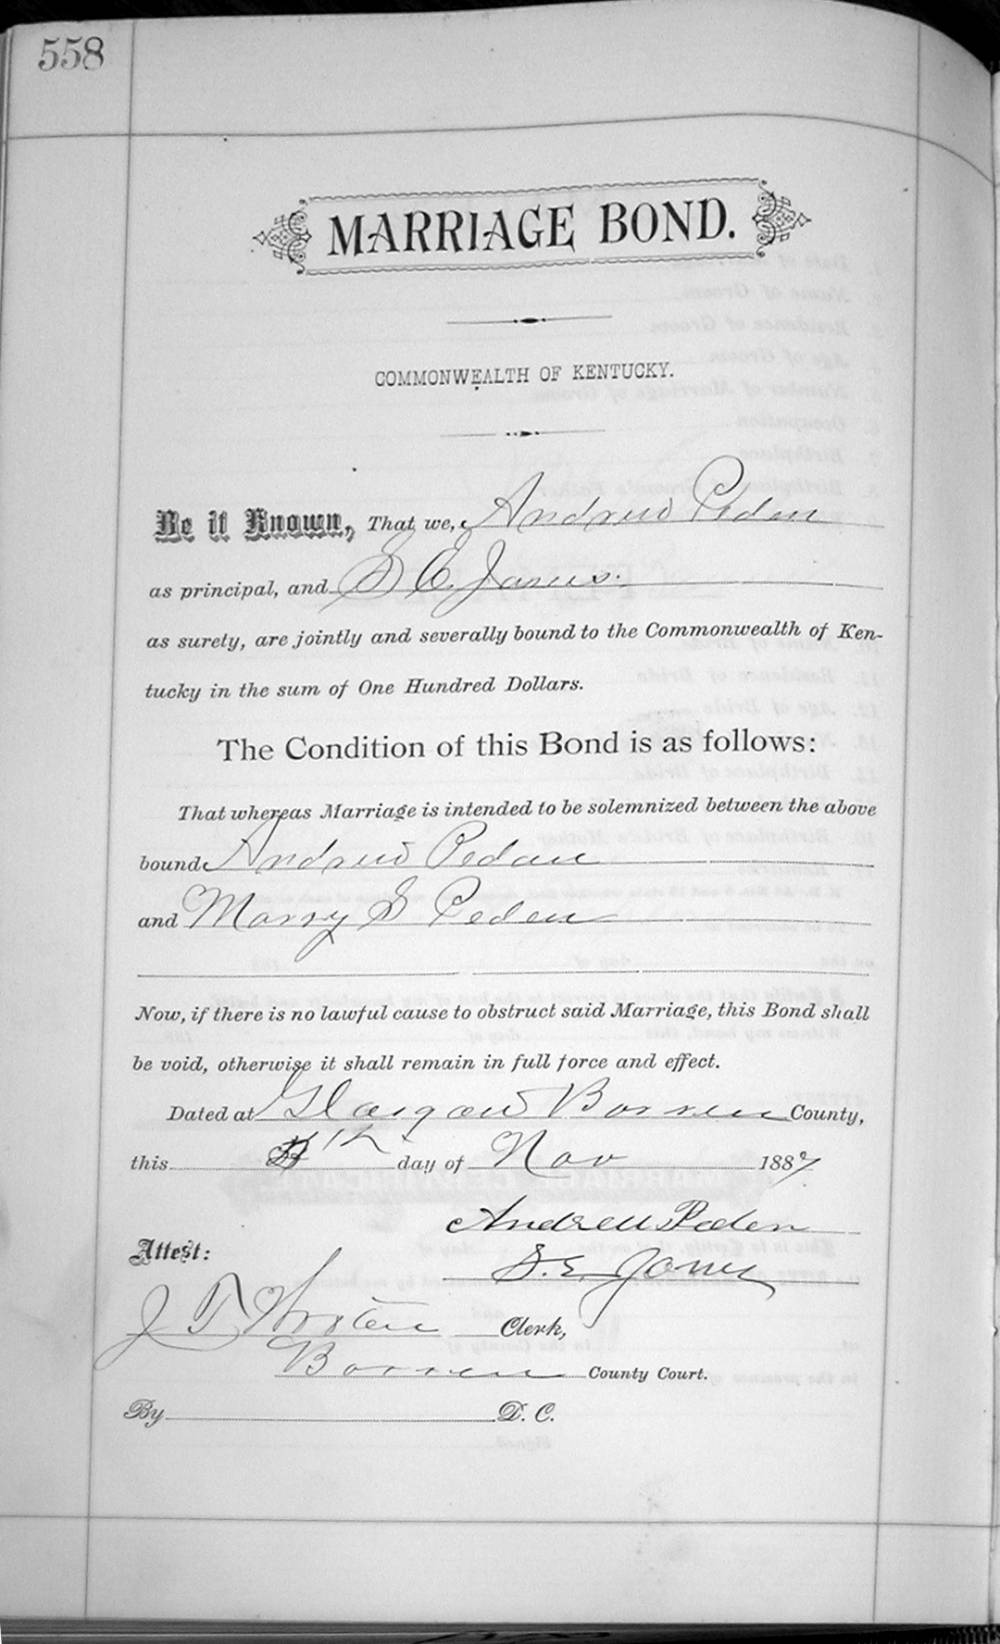 558
MARRIAGE BOND.
COMMONWEALTH OF KENTUCKY.
Be it Known, That we, Andrew Peden
as principal, and S E Jones.
as surety, are jointly and severally bound to the Commonwealth of Ken-
tucky in the sum of One Hundred Dollars.
The Condition of this Bond is as follows:
That whereas Marriage is intended to be solemnized between the above
bound Andrew Peden
and Marry S Peden
Now, if there is no lawful cause to obstruct said Marriage, this Bond shall
be void, otherwise it shall remain in full force and effect.
Dated at Glasgow Barren County,
this day of Nov 1887
Andrew Peden
Attest:
S. E. Jones
J T Wooten Clerk,
Barren County Court.
By D. C.